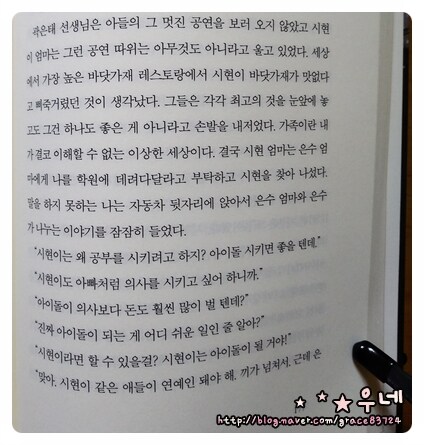 곽은태 선생님은 아들의 그 멋진 공연을 보러 오지 않았고 시현
이 엄마는 그런 공연 따위는 아무것도 아니라고 울고 있었다. 세상
에서 가장 높은 바닷가재 레스토랑에서 시현이 바닷가재가 맛없다
고 삐죽거렸던 것이 생각났다. 그들은 각각 최고의 것을 눈앞에 놓
고도 그건 하나도 좋은 게 아니라고 손발을 내저었다. 가족이란 내
가 결코 이해할 수 없는 이상한 세상이다. 결국 시현 엄마는 은수 엄
마에게 나를 학원에 데려다달라고 부탁하고 시현을 찾아 나섰다.
말을 하지 못하는 나는 자동차 뒷자리에 앉아서 은수 엄마와 은수
가 나누는 이야기를 잠잠히 들었다.
"시현이는 왜 공부를 시키려고 하지? 아이돌 시키면 좋을 텐데."
"시현이도 아빠처럼 의사를 시키고 싶어 하니까."
"아이돌이 의사보다 돈도 훨씬 많이 벌 텐데?"
"진짜 아이돌이 되는 게 어디 쉬운 일인 줄 알아?"
"시현이라면 할 수 있을걸? 시현이는 아이돌이 될 거야!"
"맞아, 시현이 같은 애들이 연예인 돼야 해. 끼가 넘쳐서. 근데 은
★우네
http://blog.naver.com/grace83724